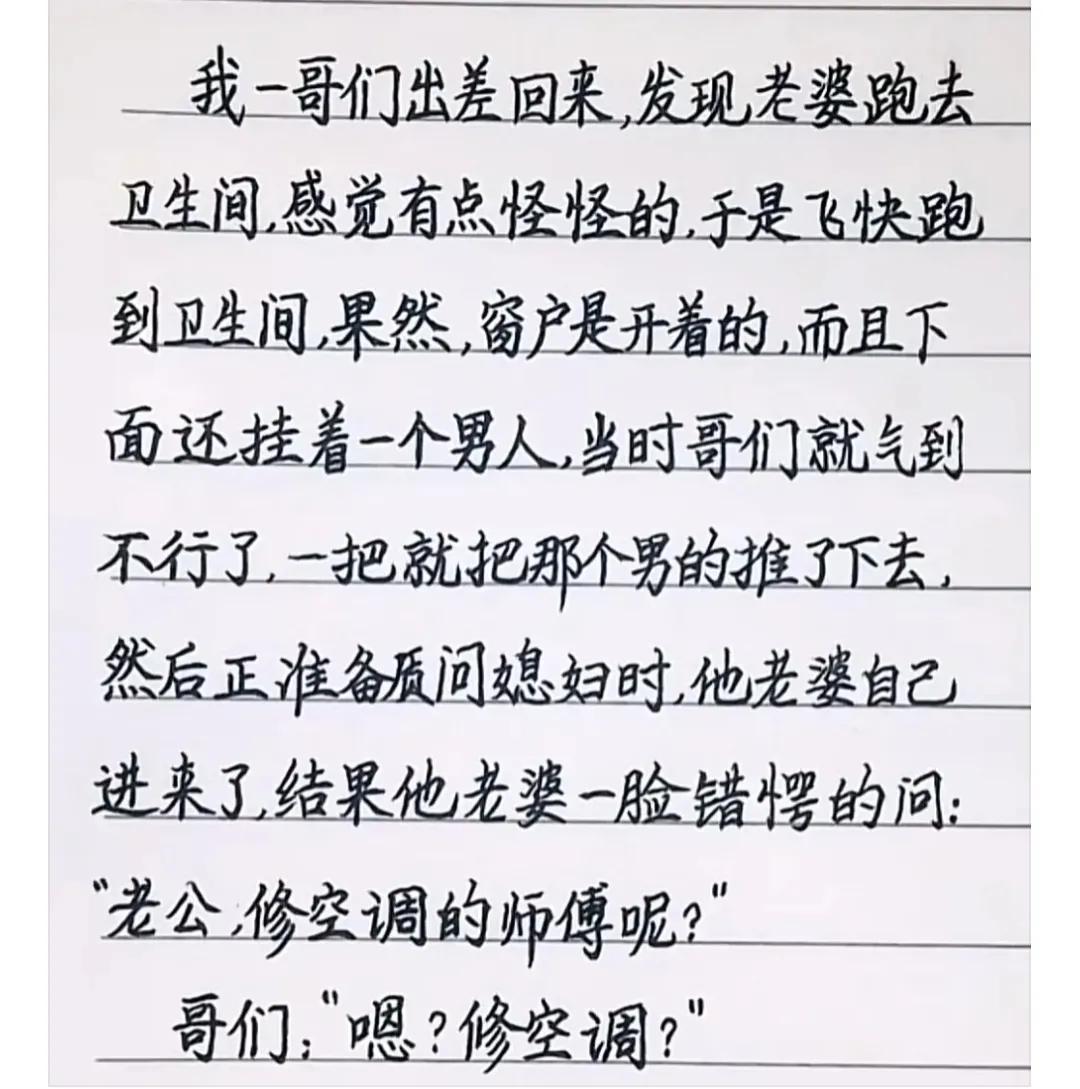 我一哥们出差回来,发现老婆跑去
卫生间,感觉有点怪怪的,于是飞快跑
到卫生间,果然,窗户是开着的,而且下
面还挂着一个男人,当时哥们就气到
不行了,一把就把那个男的推了下去,
然后正准备质问媳妇时,他老婆自己
进来了,结果他老婆一脸错愕的问:
"老公,修空调的师傅呢?"
哥们:"嗯?修空调?"